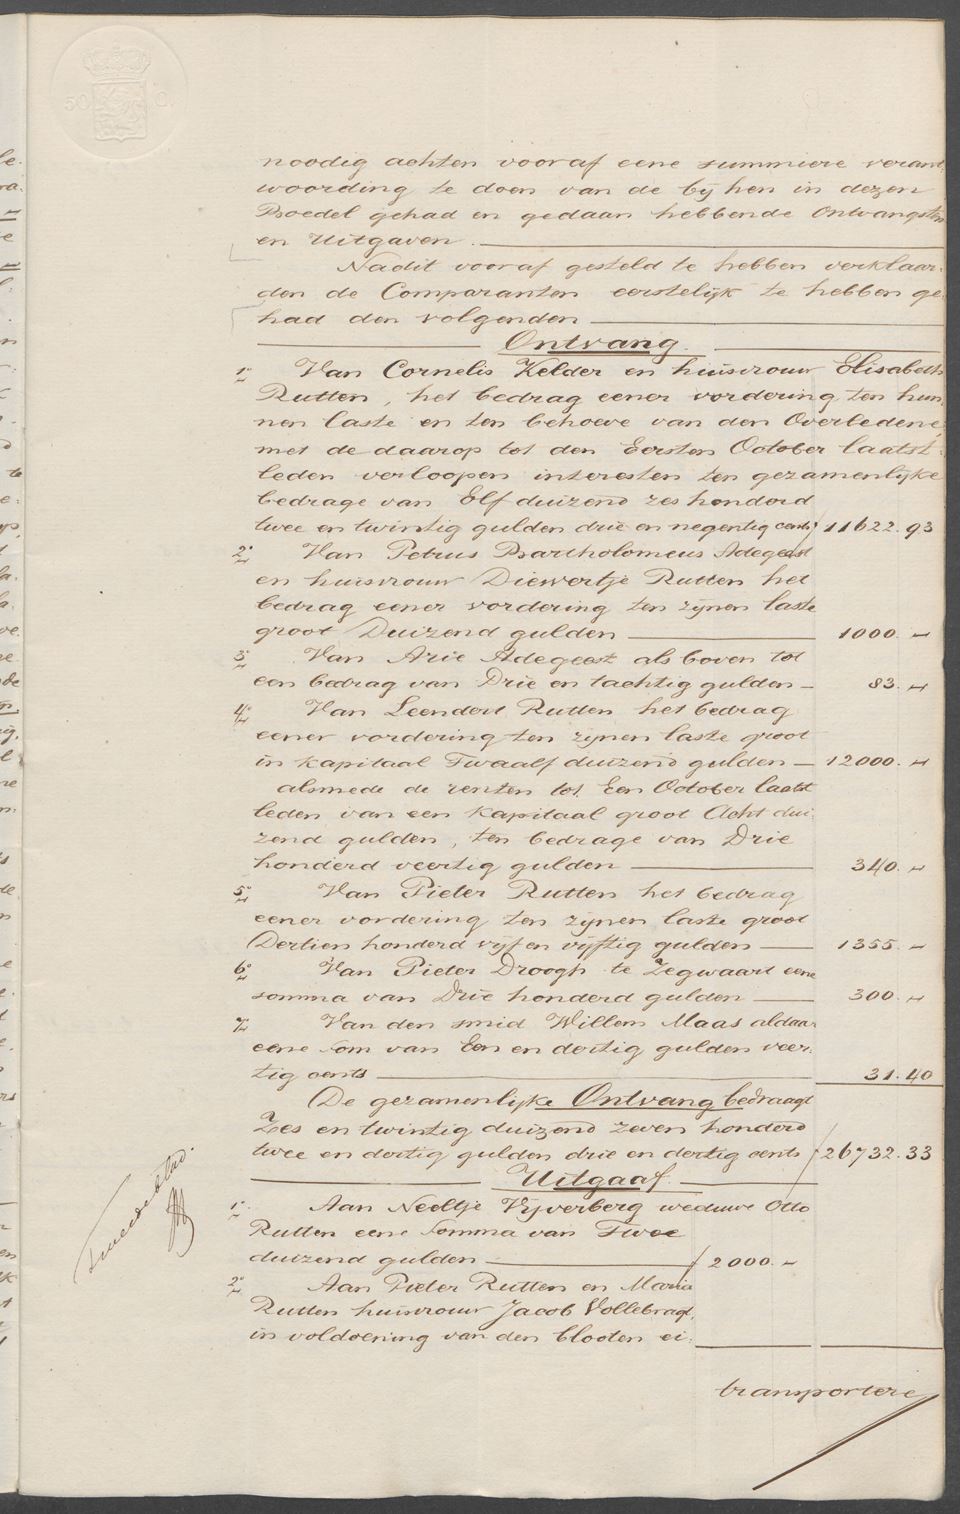 50 C.
noodig achten vooraf eene summiere verant
woording te doen van de bij hen in dezen
Boedel gehad en gedaan hebbende ontvangsten
en uitgaven.
Nadit vooraf gesteld te hebben verklaar-
den de Comparanten eerstelijk te hebben ge-
had den volgenden
Ontvang.
1° Van Cornelis Kelder en huisvrouw Elisabeth
Rutten, het bedrag eener vordering ten hun-
nen laste en ten behoeve van den Overledene,
met de daarop tot den Eersten October laatst-
leden verloopen interesten ten gezamenlijke
bedrage van Elf duizend zes honderd
twee en twintig gulden drie en negentig cents f 11622.93
2° Van Petrus Bartholomeus Adegeest
en huisvrouw Diewertje Rutten het
bedrag eener vordering ten zijnen laste
groot Duizend gulden 1000. "
3° Van Arie Adegeest als boven tot
een bedrag van Drie en tachtig gulden 83. "
4° Van Leendert Rutten het bedrag
eener vordering ten zijnen laste groot
in kapitaal Twaalf duizend gulden 12000. "
alsmede de renten tot Een October laatst
leden van een kapitaal groot Acht dui-
zend gulden, ten bedrage van Drie
honderd veertig gulden 340. "
5° Van Pieter Rutten het bedrag
eener vordering ten zijnen laste groot
Dertien honderd vijf en vijftig gulden 1355. "
6° Van Pieter Droogh te Zegwaart eene
somma van Drie honderd gulden 300. "
7° Van den smid Willem Maas aldaar
eene som van Een en dertig gulden veer-
tig cents 31.40
De gezamenlijke Ontvang bedraagt
Zes en twintig duizend zeven honderd
twee en dertig gulden drie en dertig cents f 26732.33
Uitgaaf.
1° Aan Neeltje Vijverberg weduwe Otto
Rutten eene somma van Twee
duizend gulden f 2000. "
2° Aan Pieter Rutten en Maria
Rutten huisvrouw Jacob Vollebragt,
in voldoening van den blooten ei-
transportere
Tweede blad.